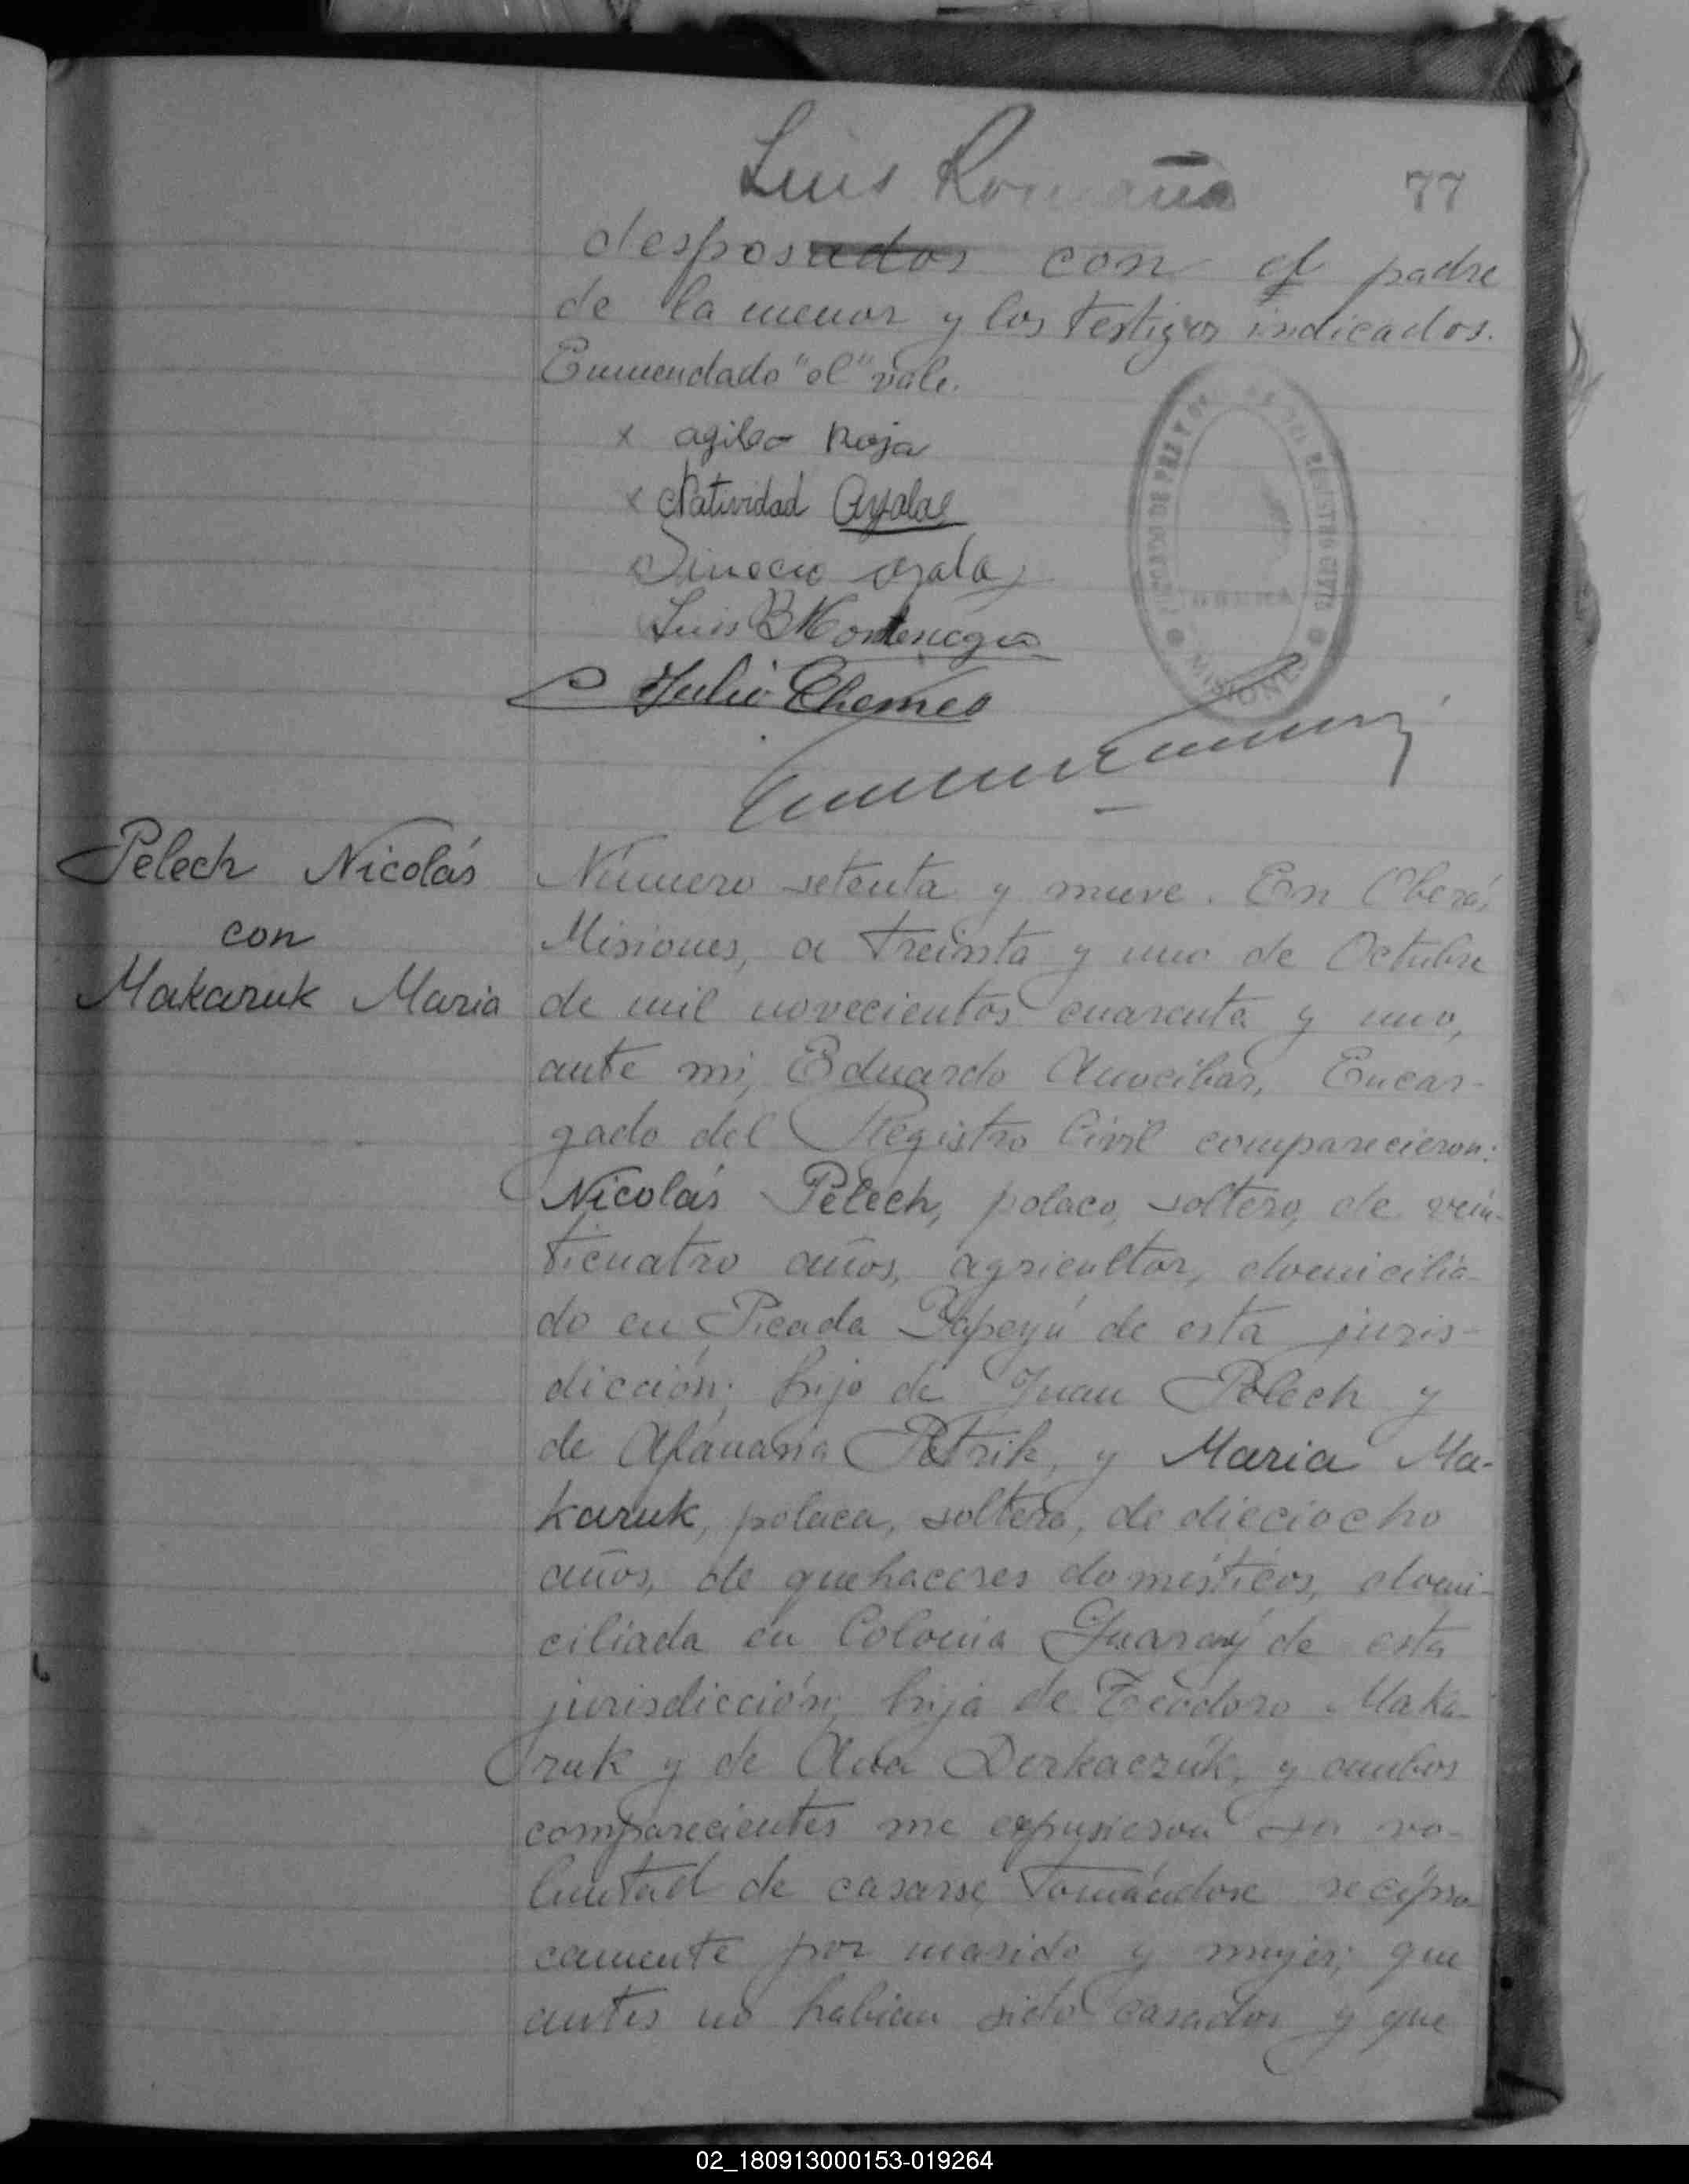 Luis Romaña
77
desposados con el padre
de la menor y los testigos indicados.
Enmendado "el" vale.
x agileo Roja
x Natividad Ayala
ayala
Luis B Montenegro
Julio Chemes
JUZGADO DE PAZ Y REGISTRO CIVIL
OBERÁ
MISIONES
Pelech Nicolás
con
Makaruk Maria
Número setenta y nueve. En Oberá,
Misiones, a treinta y uno de Octubre
de mil novecientos cuarenta y uno,
ante mi, Eduardo Anocibar, Encar-
gado del Registro Civil comparecieron:
Nicolás Pelech, polaco, soltero, de vein-
ticuatro años, agricultor, domicilia-
do en Picada Yapeyú de esta juris-
dicción; hijo de Juan Pelech y
de Afanasia Petrik, y Maria Ma-
karuk, polaca, soltera, de dieciocho
años, de quehaceres domésticos, domi-
ciliada en Colonia Guaraný de esta
jurisdicción, hija de Teodoro Maka-
ruk y de Ana Derkaczúk, y ambos
comparecientes me expusieron su vo-
luntad de casarse, tomándose recípro-
camente por marido y mujer; que
antes no habian sido casados y que
02_180913000153-019264